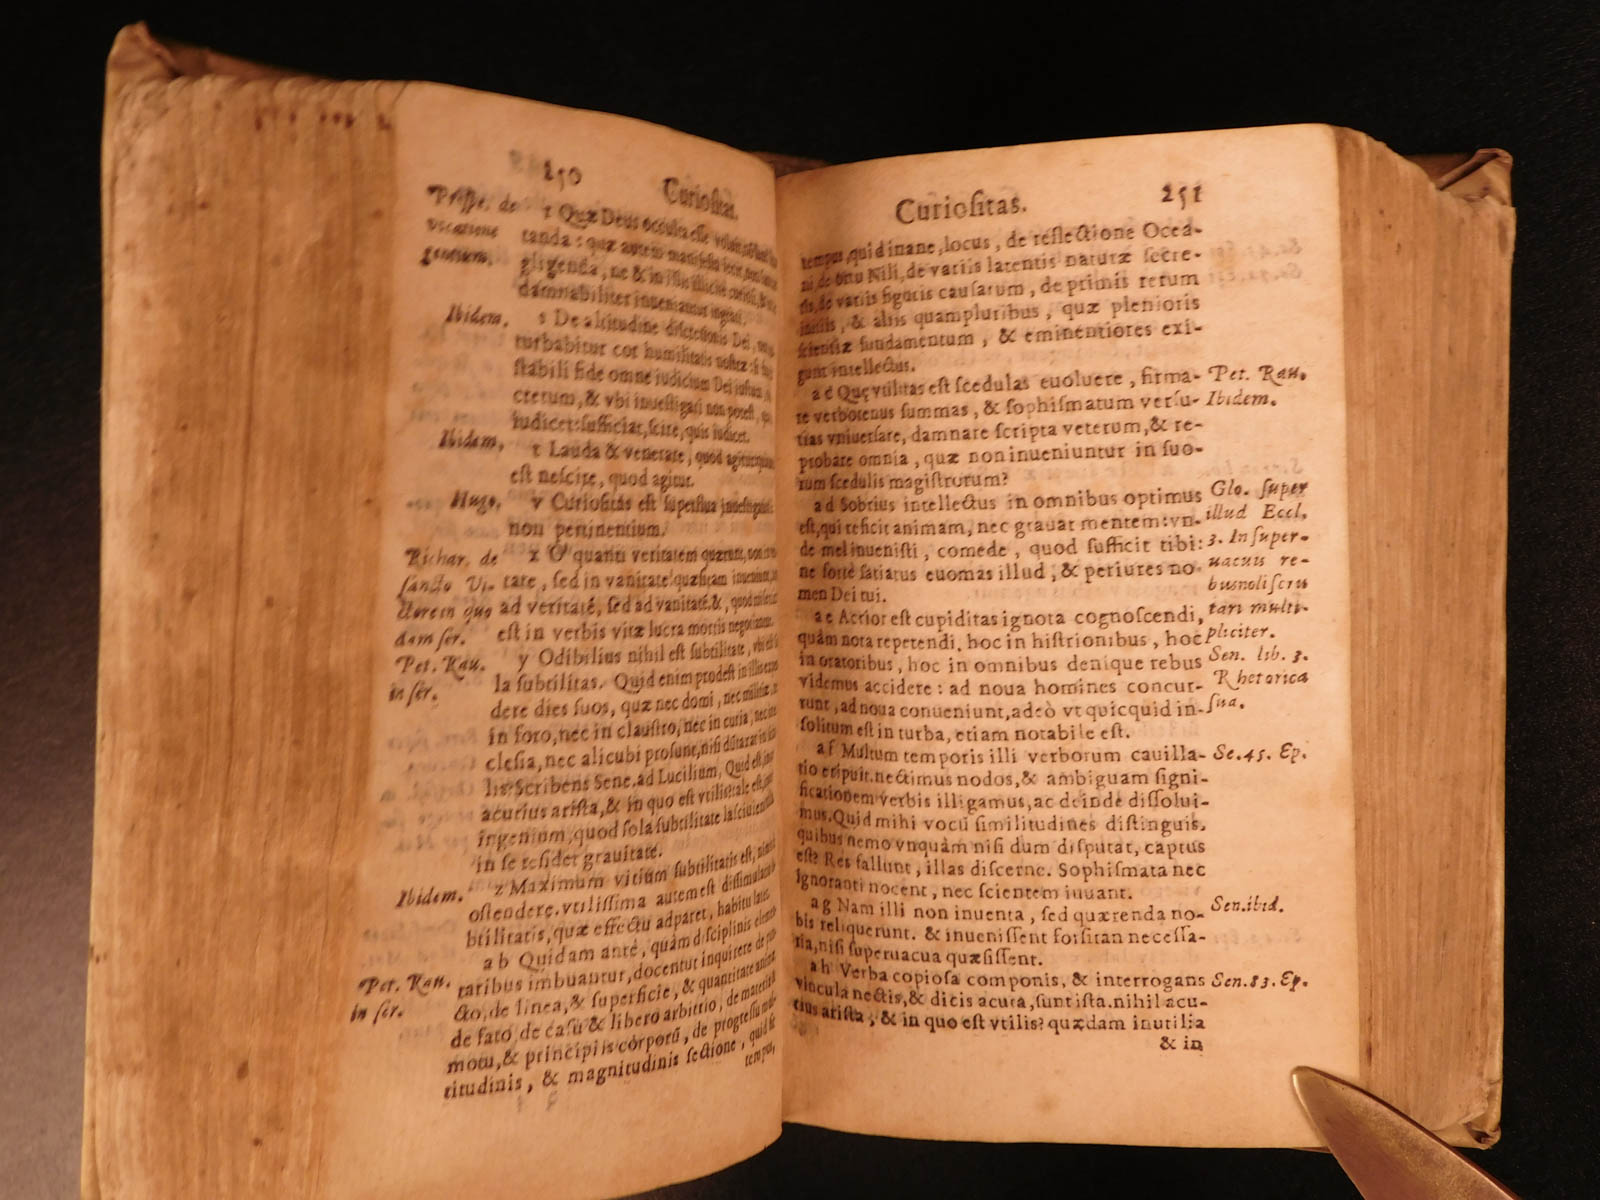 250 Curiositas.
Prosp. de
vocatione
gentium.
r Quæ Deus occulta esse voluit
tanda : quæ autem manifesta
gligenda, ne & in illis illicitè curiosi, &
damnabiliter inueniamur ingrati.
Ibidem.
s De altitudine discretionis Dei, non
turbabitur cor humilitatis nostræ: si
stabili fide omne iudicium Dei iustum
cretum, & vbi inuestigari non potest,
iudicet: sufficiat, scire, quis iudicet.
Ibidem.
t Lauda & venerare, quod agitur,
est nescire, quod agitur.
Hugo.
v Curiositas est superflua inuestigatio
non pertinentium.
Richar. de
sancto Vi-
ctore in quo
dam ser.
x O quanti veritatem quærunt, non in
tate, sed in vanitate! quæsitam inueniunt,
ad veritatē, sed ad vanitatē. &, quod
est in verbis vitæ lucra mortis negotiantur.
Pet. Rau.
in ser.
y Odibilius nihil est subtilitate, vbi est
la subtilitas. Quid enim prodest in illis
dere dies suos, quæ nec domi, nec militiæ,
in foro, nec in claustro, nec in curia, nec
clesia, nec alicubi prosunt, nisi dūtaxat in
lis: Scribens Sene. ad Lucilium, Quid est, inquit,
acutius arista, & in quo est vtilis: tale est,
ingenium, quod sola subtilitate lasciuiens
in se residet grauitate.
Ibidem.
z Maximum vitium subtilitatis est, nimia
ostendere. vtilissima autem est dissimulata
btilitatis, quæ effectu adparet, habitu latet.
Pet. Rau.
in ser.
a b Quidam antè, quàm disciplinis
taribus imbuantur, docentur inquirere de
cto, de linea, & superficie, & quantitate animæ
de fato, de casu & libero arbitrio, de materia &
motu, & principiis corporū, de progressu
titudinis, & magnitudinis sectione, quid sit
tempus,
Curiositas. 251
tempus, quid inane, locus, de reflectione Ocea-
ni, de ortu Nili, de variis latentis naturæ secre-
tis, de variis figuris causarum, de primis rerum
initiis, & aliis quampluribus, quæ plenioris
scientiæ fundamentum, & eminentiores exi-
gunt intellectus.
a c Quę vtilitas est scedulas euoluere, firma- Pet. Rau.
re verbotenus summas, & sophismatum versu- Ibidem.
tias vniuersare, damnare scripta veterum, & re-
probare omnia, quæ non inueniuntur in suo-
rum scedulis magistrorum?
a d Sobrius intellectus in omnibus optimus Glo. super
est, qui reficit animam, nec grauat mentem: vn- illud Eccl.
de mel inuenisti, comede, quod sufficit tibi: 3. In super-
ne fortè satiatus euomas illud, & periures no- uacuis re-
men Dei tui. bus noli scru
a e Acrior est cupiditas ignota cognoscendi, tari multi-
quàm nota repetendi. hoc in histrionibus, hoc pliciter.
in oratoribus, hoc in omnibus denique rebus Sen. lib. 3.
videmus accidere: ad noua homines concur- Rhetorica
runt, ad noua conueniunt, adeò vt quicquid in- sua.
solitum est in turba, etiam notabile est.
a f Multum temporis illi verborum cauilla- Se. 45. Ep.
tio eripuit. nectimus nodos, & ambiguam signi-
ficationem verbis illigamus, ac deinde dissolui-
mus. Quid mihi vocū similitudines distinguis,
quibus nemo vnquàm nisi dum disputat, captus
est? Res fallunt, illas discerne. Sophismata nec
ignoranti nocent, nec scientem iuuant.
a g Nam illi non inuenta, sed quærenda no- Sen. ibid.
bis reliquerunt. & inuenissent forsitan necessa-
ria, nisi superuacua quæsissent.
a h Verba copiosa componis, & interrogans Sen. 83. Ep.
vincula nectis, & dicis acuta, sunt ista. nihil acu-
tius arista, & in quo est vtilis? quædam inutilia
& in